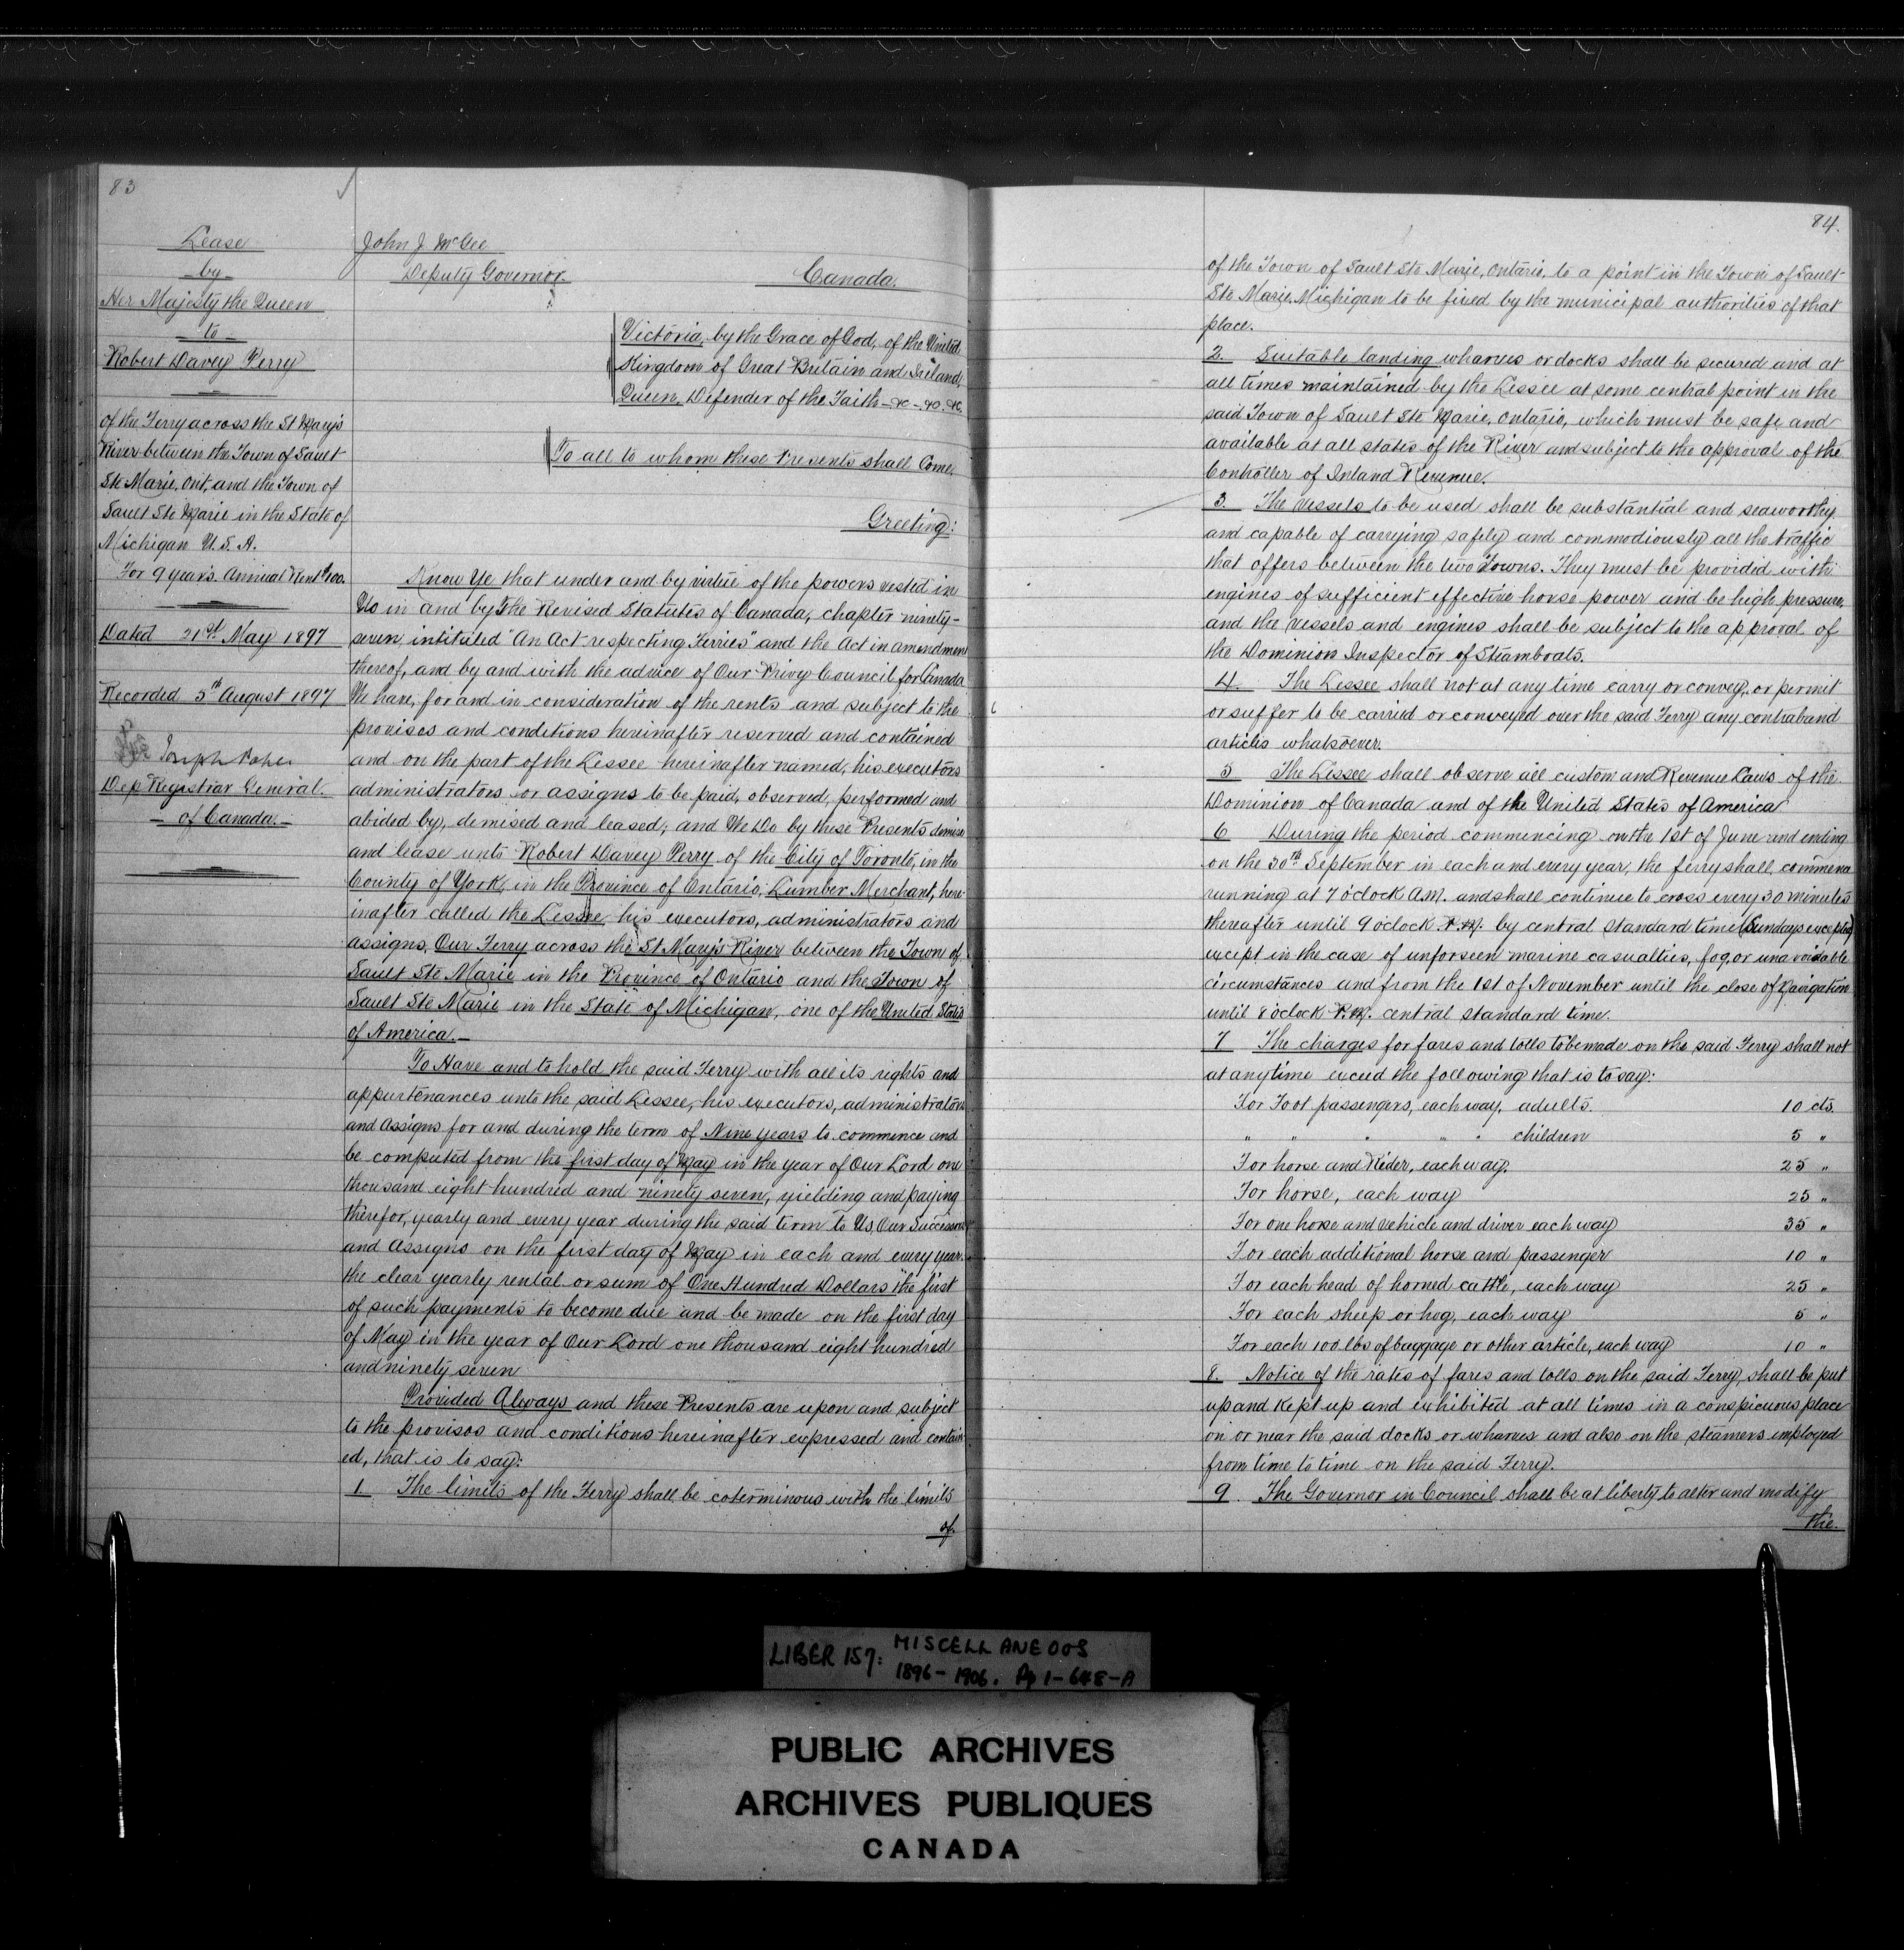 83
Lease
by
Her Majesty the Queen
to
Robert Davey Perry
of the Ferry across the St Mary's
River between the Town of Sault
Ste Marie, Ont, and the Town of
Sault Ste Marie in the State of
Michigan U.S.A.
For 9 years. Annual Rent $100.
Dated 21st May 1897
Recorded 5th August 1897
Joseph Pope
Dep Registrar General.
of Canada.
John J McGee
Deputy Governor.
Canada.
Victoria, by the Grace of God, of the United
Kingdom of Great Britain and Ireland,
Queen, Defender of the Faith &c &c. &c.
To all to whom these Presents shall Come
Greeting:
Know Ye that under and by virtue of the powers vested in
Us in and by the Revised Statutes of Canada, chapter ninety-
seven, intituled "An Act respecting Ferries" and the Act in amendment
thereof, and by and with the advice of Our Privy Council for Canada
We have, for and in consideration of the rents and subject to the
provisos and conditions hereinafter reserved and contained
and on the part of the Lessee hereinafter named, his executors
administrators or assigns to be paid, observed, performed and
abided by, demised and leased; and We Do by these Presents demise
and lease unto Robert Davey Perry of the City of Toronto, in the
County of York, in the Province of Ontario, Lumber Merchant, here-
inafter called the Lessee, his executors, administrators and
assigns, Our Ferry across the St Mary's River between the Town of
Sault Ste Marie in the Province of Ontario and the Town of
Sault Ste Marie in the State of Michigan, one of the United States
of America.
To Have and to hold the said Ferry with all its rights and
appurtenances unto the said Lessee, his executors, administrators
and assigns for and during the term of Nine years to commence and
be computed from the first day of May in the year of Our Lord one
thousand eight hundred and ninety seven, yielding and paying
therefor, yearly and every year during the said term to Us, Our Successors
and Assigns on the first day of May in each and every year
the clear yearly rental or sum of One Hundred Dollars the first
of such payments to become due and be made on the first day
of May in the year of Our Lord one thousand eight hundred
and ninety seven
Provided Always and these Presents are upon and subject
to the provisos and conditions hereinafter expressed and contain-
ed, that is to say:
1 The limits of the Ferry shall be coterminous with the limits
of
84.
of the Town of Sault Ste Marie, Ontario, to a point in the Town of Sault
Ste Marie, Michigan to be fixed by the municipal authorities of that
place.
2. Suitable landing wharves or docks shall be secured and at
all times maintained by the Lessee at some central point in the
said Town of Sault Ste Marie, Ontario, which must be safe and
available at all states of the River and subject to the approval of the
Controller of Inland Revenue.
3. The vessels to be used shall be substantial and seaworthy
and capable of carrying safely and commodiously all the traffic
that offers between the two Towns. They must be provided with
engines of sufficient effective horse power and be high pressure,
and the vessels and engines shall be subject to the approval of
the Dominion Inspector of Steamboats.
4. The Lessee shall not at any time carry or convey, or permit
or suffer to be carried or conveyed over the said Ferry any contraband
articles whatsoever.
5 The Lessee shall observe all custom and Revenue Laws of the
Dominion of Canada and of the United States of America
6 During the period commencing on the 1st of June and ending
on the 30th September in each and every year, the ferry shall commence
running at 7 o'clock A.M. and shall continue to cross every 30 minutes
thereafter until 9 o'clock P.M. by central standard time (Sundays excepted)
except in the case of unforseen marine casualties, fog, or unavoidable
circumstances and from the 1st of November until the close of Navigation
until 8 o'clock P.M. central standard time.
7 The charges for fares and tolls to be made on the said Ferry shall not
at any time exceed the following that is to say:
For Foot passengers, each way, adults. 10 cts.
" " " " " children 5 "
For horse and Rider, each way. 25 "
For horse, each way 25 "
For one horse and vehicle and driver each way 35 "
For each additional horse and passenger 10 "
For each head of horned cattle, each way 25 "
For each sheep or hog, each way 5 "
For each 100 lbs of baggage or other article, each way 10 "
8. Notice of the rates of fares and tolls on the said Ferry, shall be put
up and kept up and exhibited at all times in a conspicuous place
on or near the said docks or wharves and also on the steamers employed
from time to time on the said Ferry.
9. The Governor in Council shall be at liberty to alter and modify
the.
LIBER 157: MISCELLANEOUS
1896-1906. Pp 1-648-A
PUBLIC ARCHIVES
ARCHIVES PUBLIQUES
CANADA